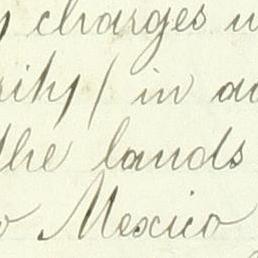 charges
in
the lands
Mexico